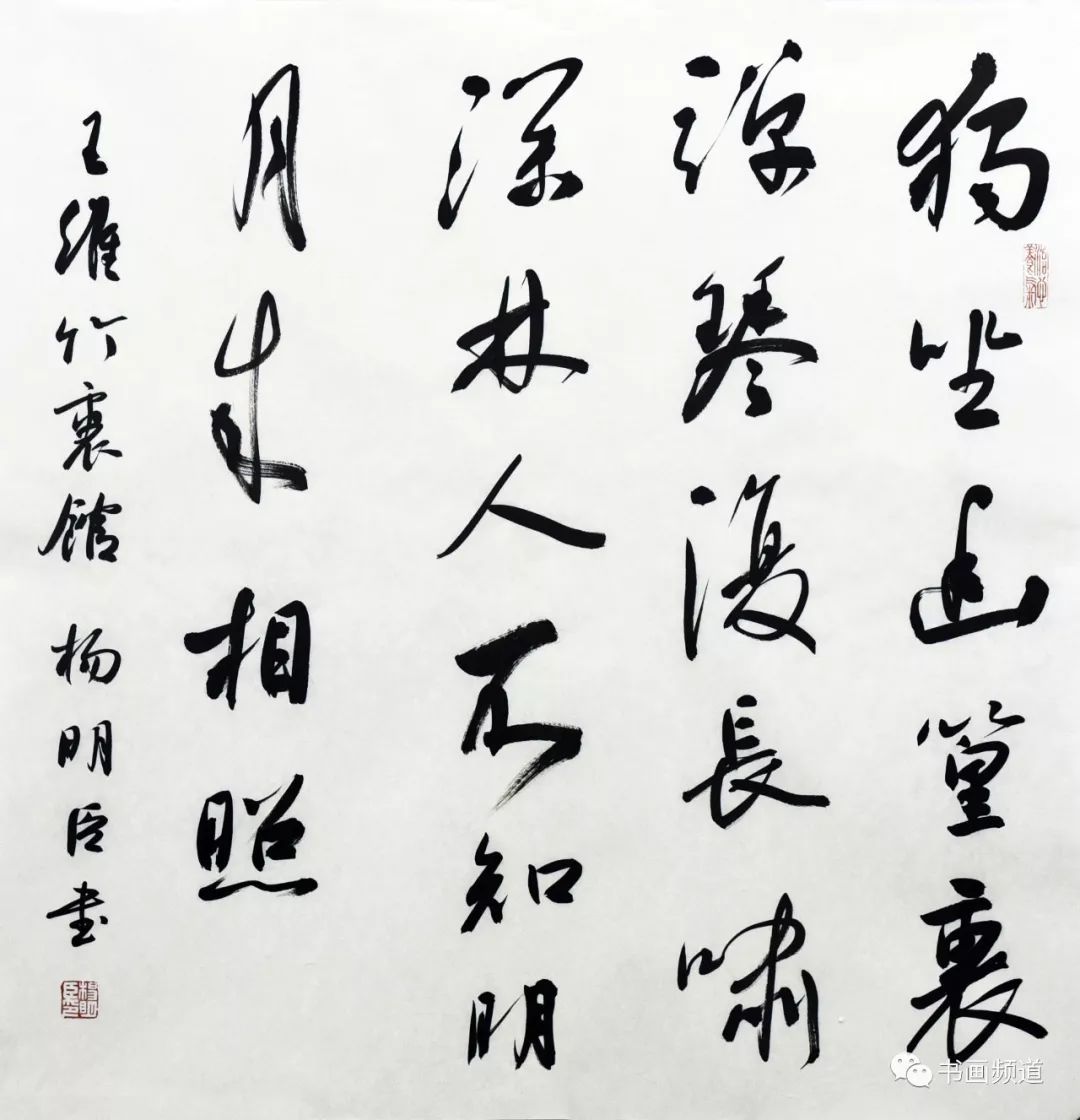 獨坐幽篁裏
彈琴復長嘯
深林人不知明
月来相照
王維竹裏館 杨明臣書
楊明臣印
书画频道